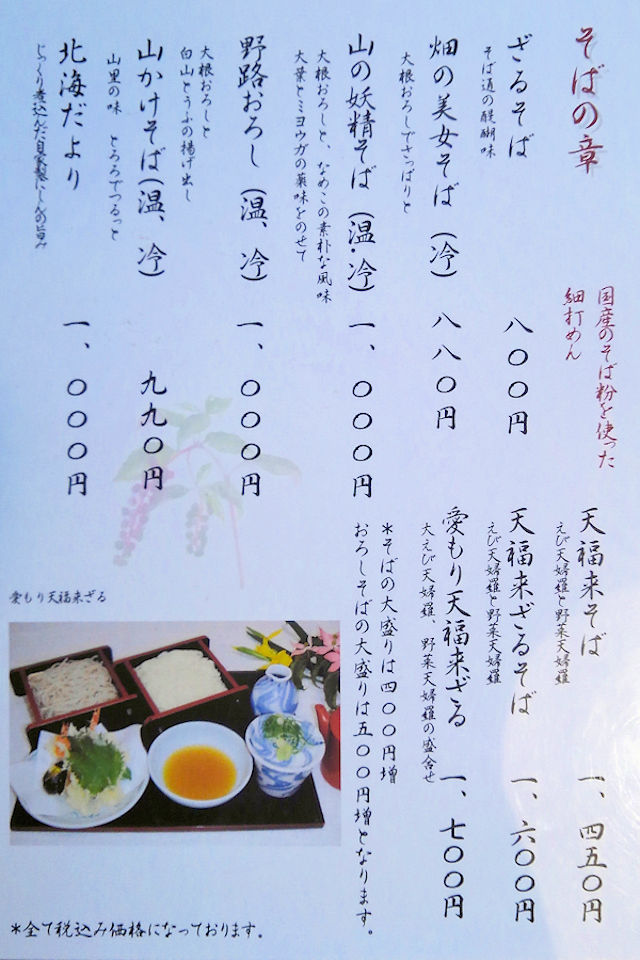 そばの章
国産のそば粉を使った
細打めん
ざるそば 八〇〇円
そば通の醍醐味
畑の美女そば（冷） 八八〇円
大根おろしでさっぱりと
山の妖精そば（温・冷） 一、〇〇〇円
大根おろしと、なめこの素朴な風味
大葉とミョウガの薬味をのせて
野路おろし（温、冷） 一、〇〇〇円
大根おろしと
白山とうふの揚げ出し
山かけそば（温、冷） 九九〇円
山里の味 とろろでつるっと
北海だより 一、〇〇〇円
じっくり煮込んだ自家製にしんの旨み
天福来そば 一、四五〇円
えび天婦羅と野菜天婦羅
天福来ざるそば 一、六〇〇円
えび天婦羅と野菜天婦羅
愛もり天福来ざる 一、七〇〇円
大えび天婦羅 野菜天婦羅の盛合せ
＊そばの大盛りは四〇〇円増
おろしそばの大盛りは五〇〇円増となります。
愛もり天福来ざる
＊全て税込み価格になっております。